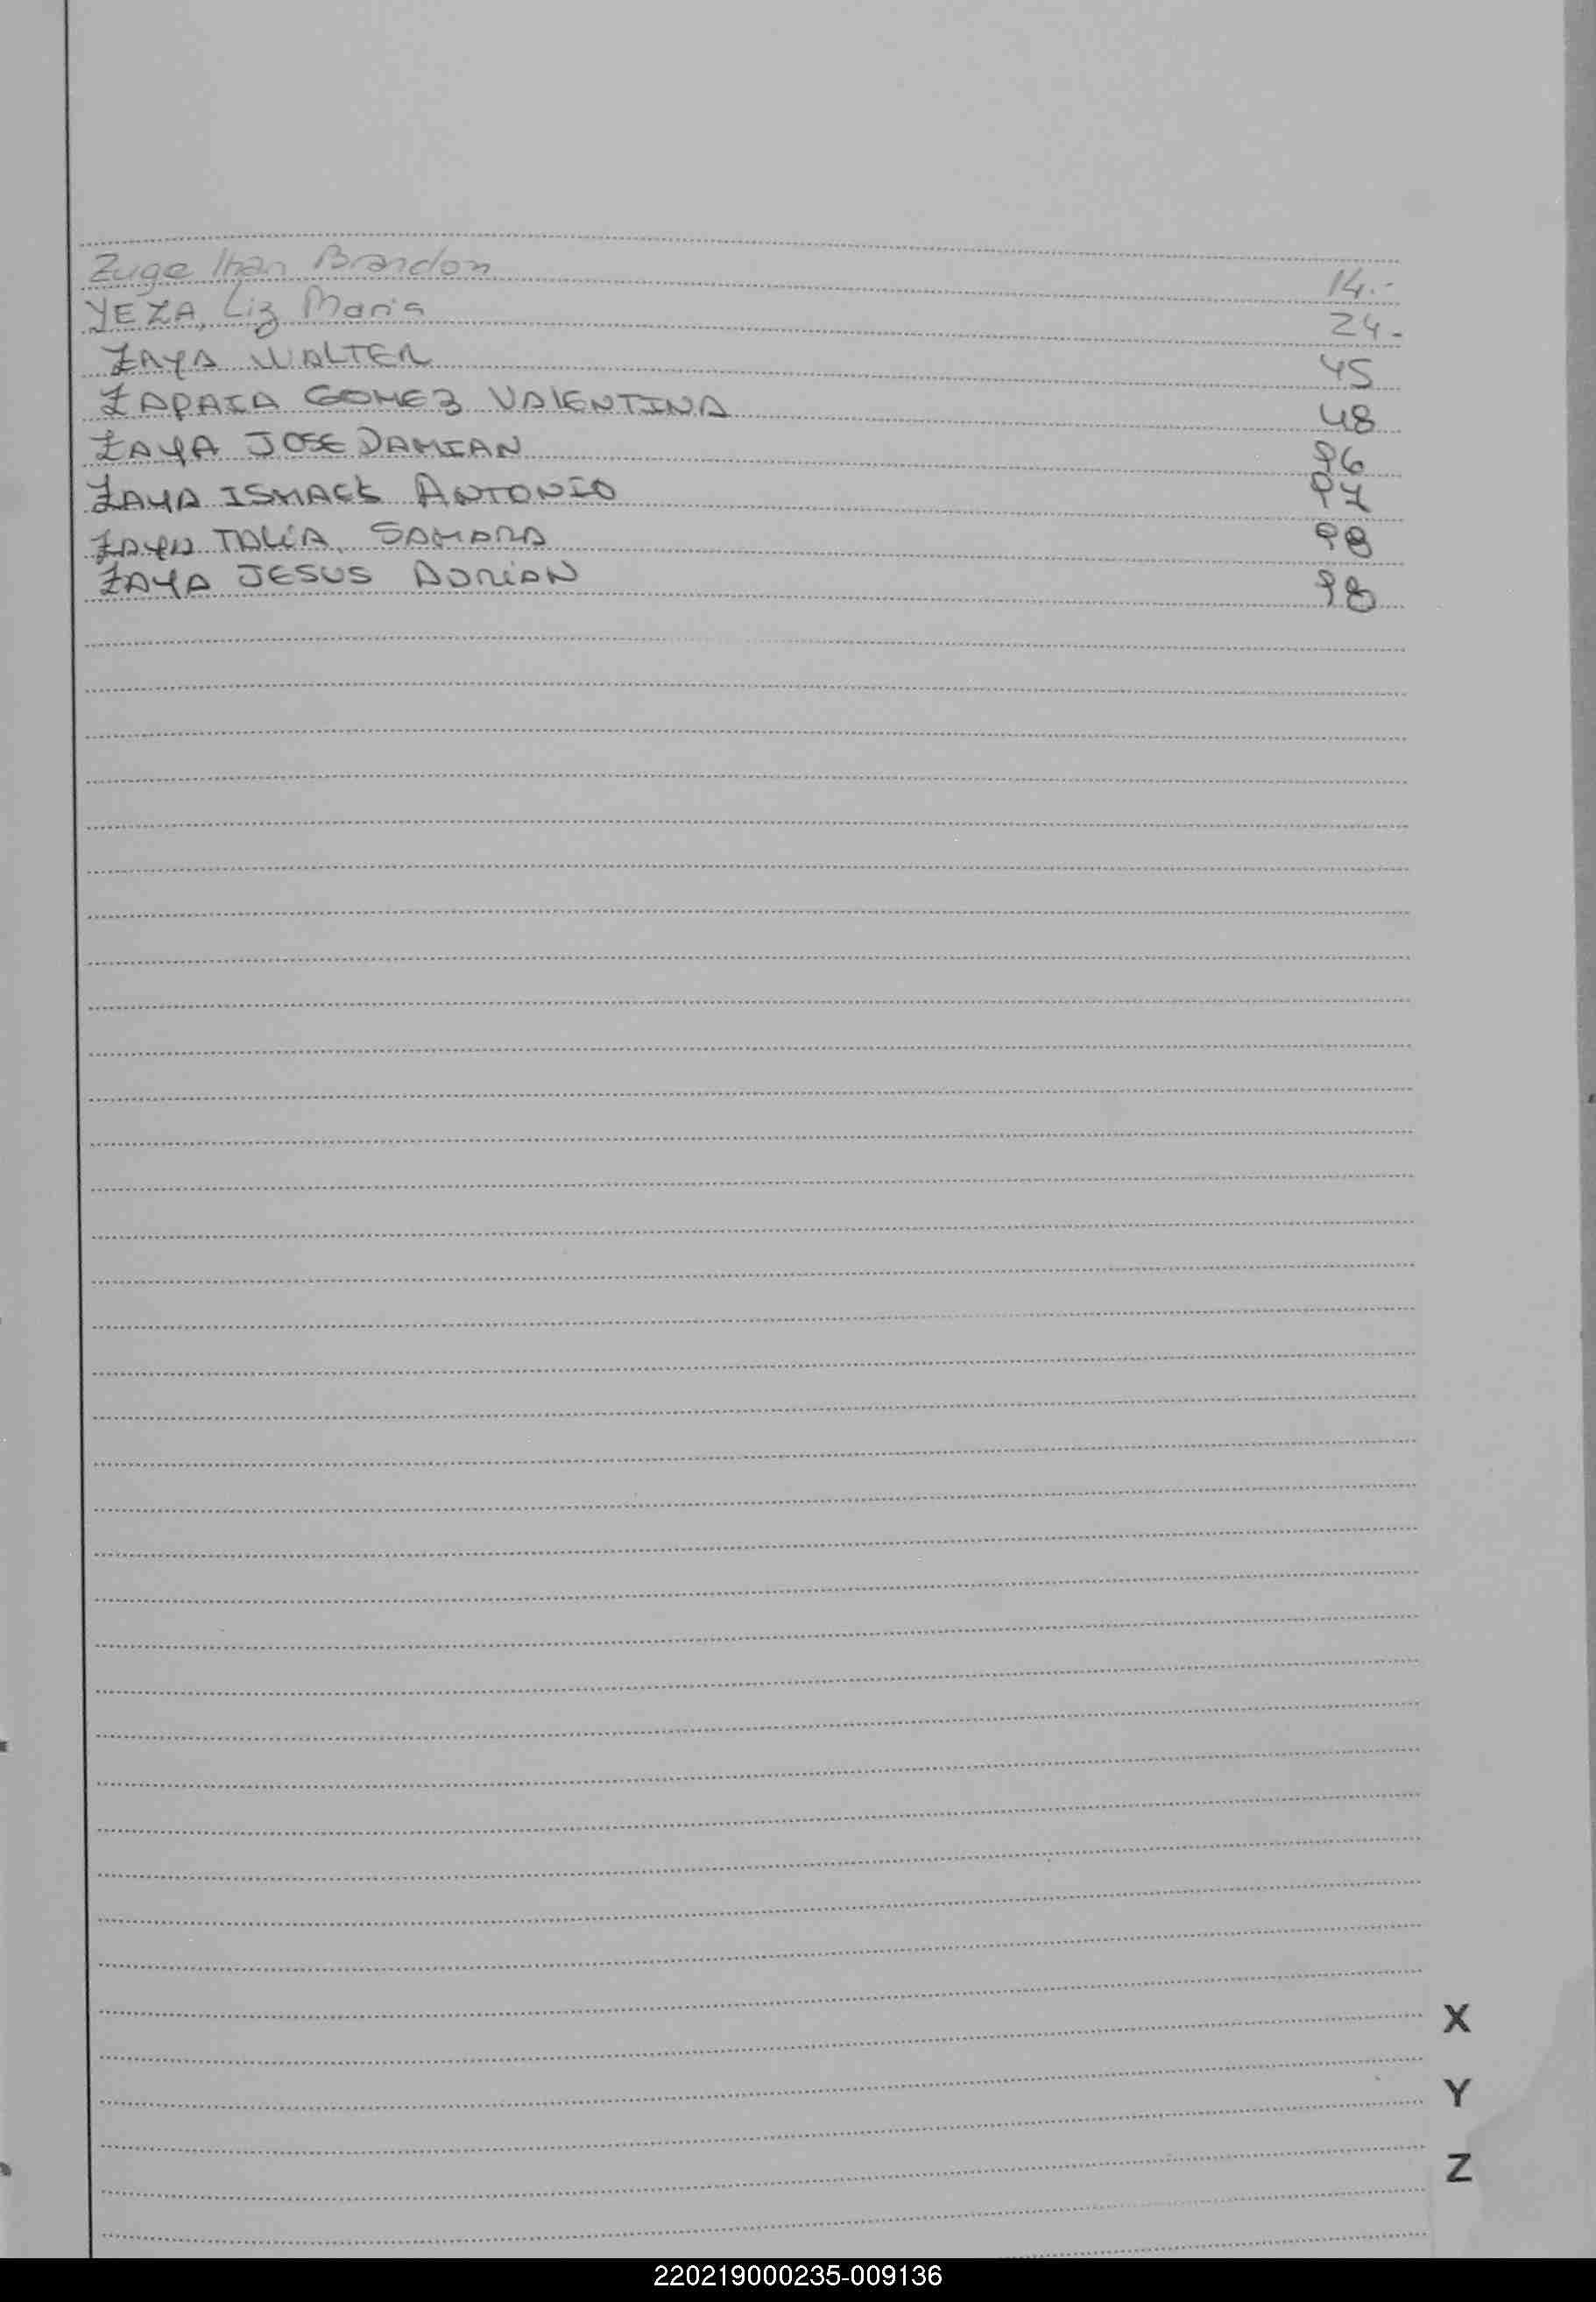 Zuge Ihan Brandon 14.-
YEZA, Liz Maria 24.-
ZAYA WALTER 45
ZAPATA GOMEZ VALENTINA 48
ZAYA JOSE DAMIAN 96
ZAYA ISMAEL ANTONIO 97
ZAYA TALIA SAMARA 98
ZAYA JESUS ADRIAN 98
X
Y
Z
220219000235-009136